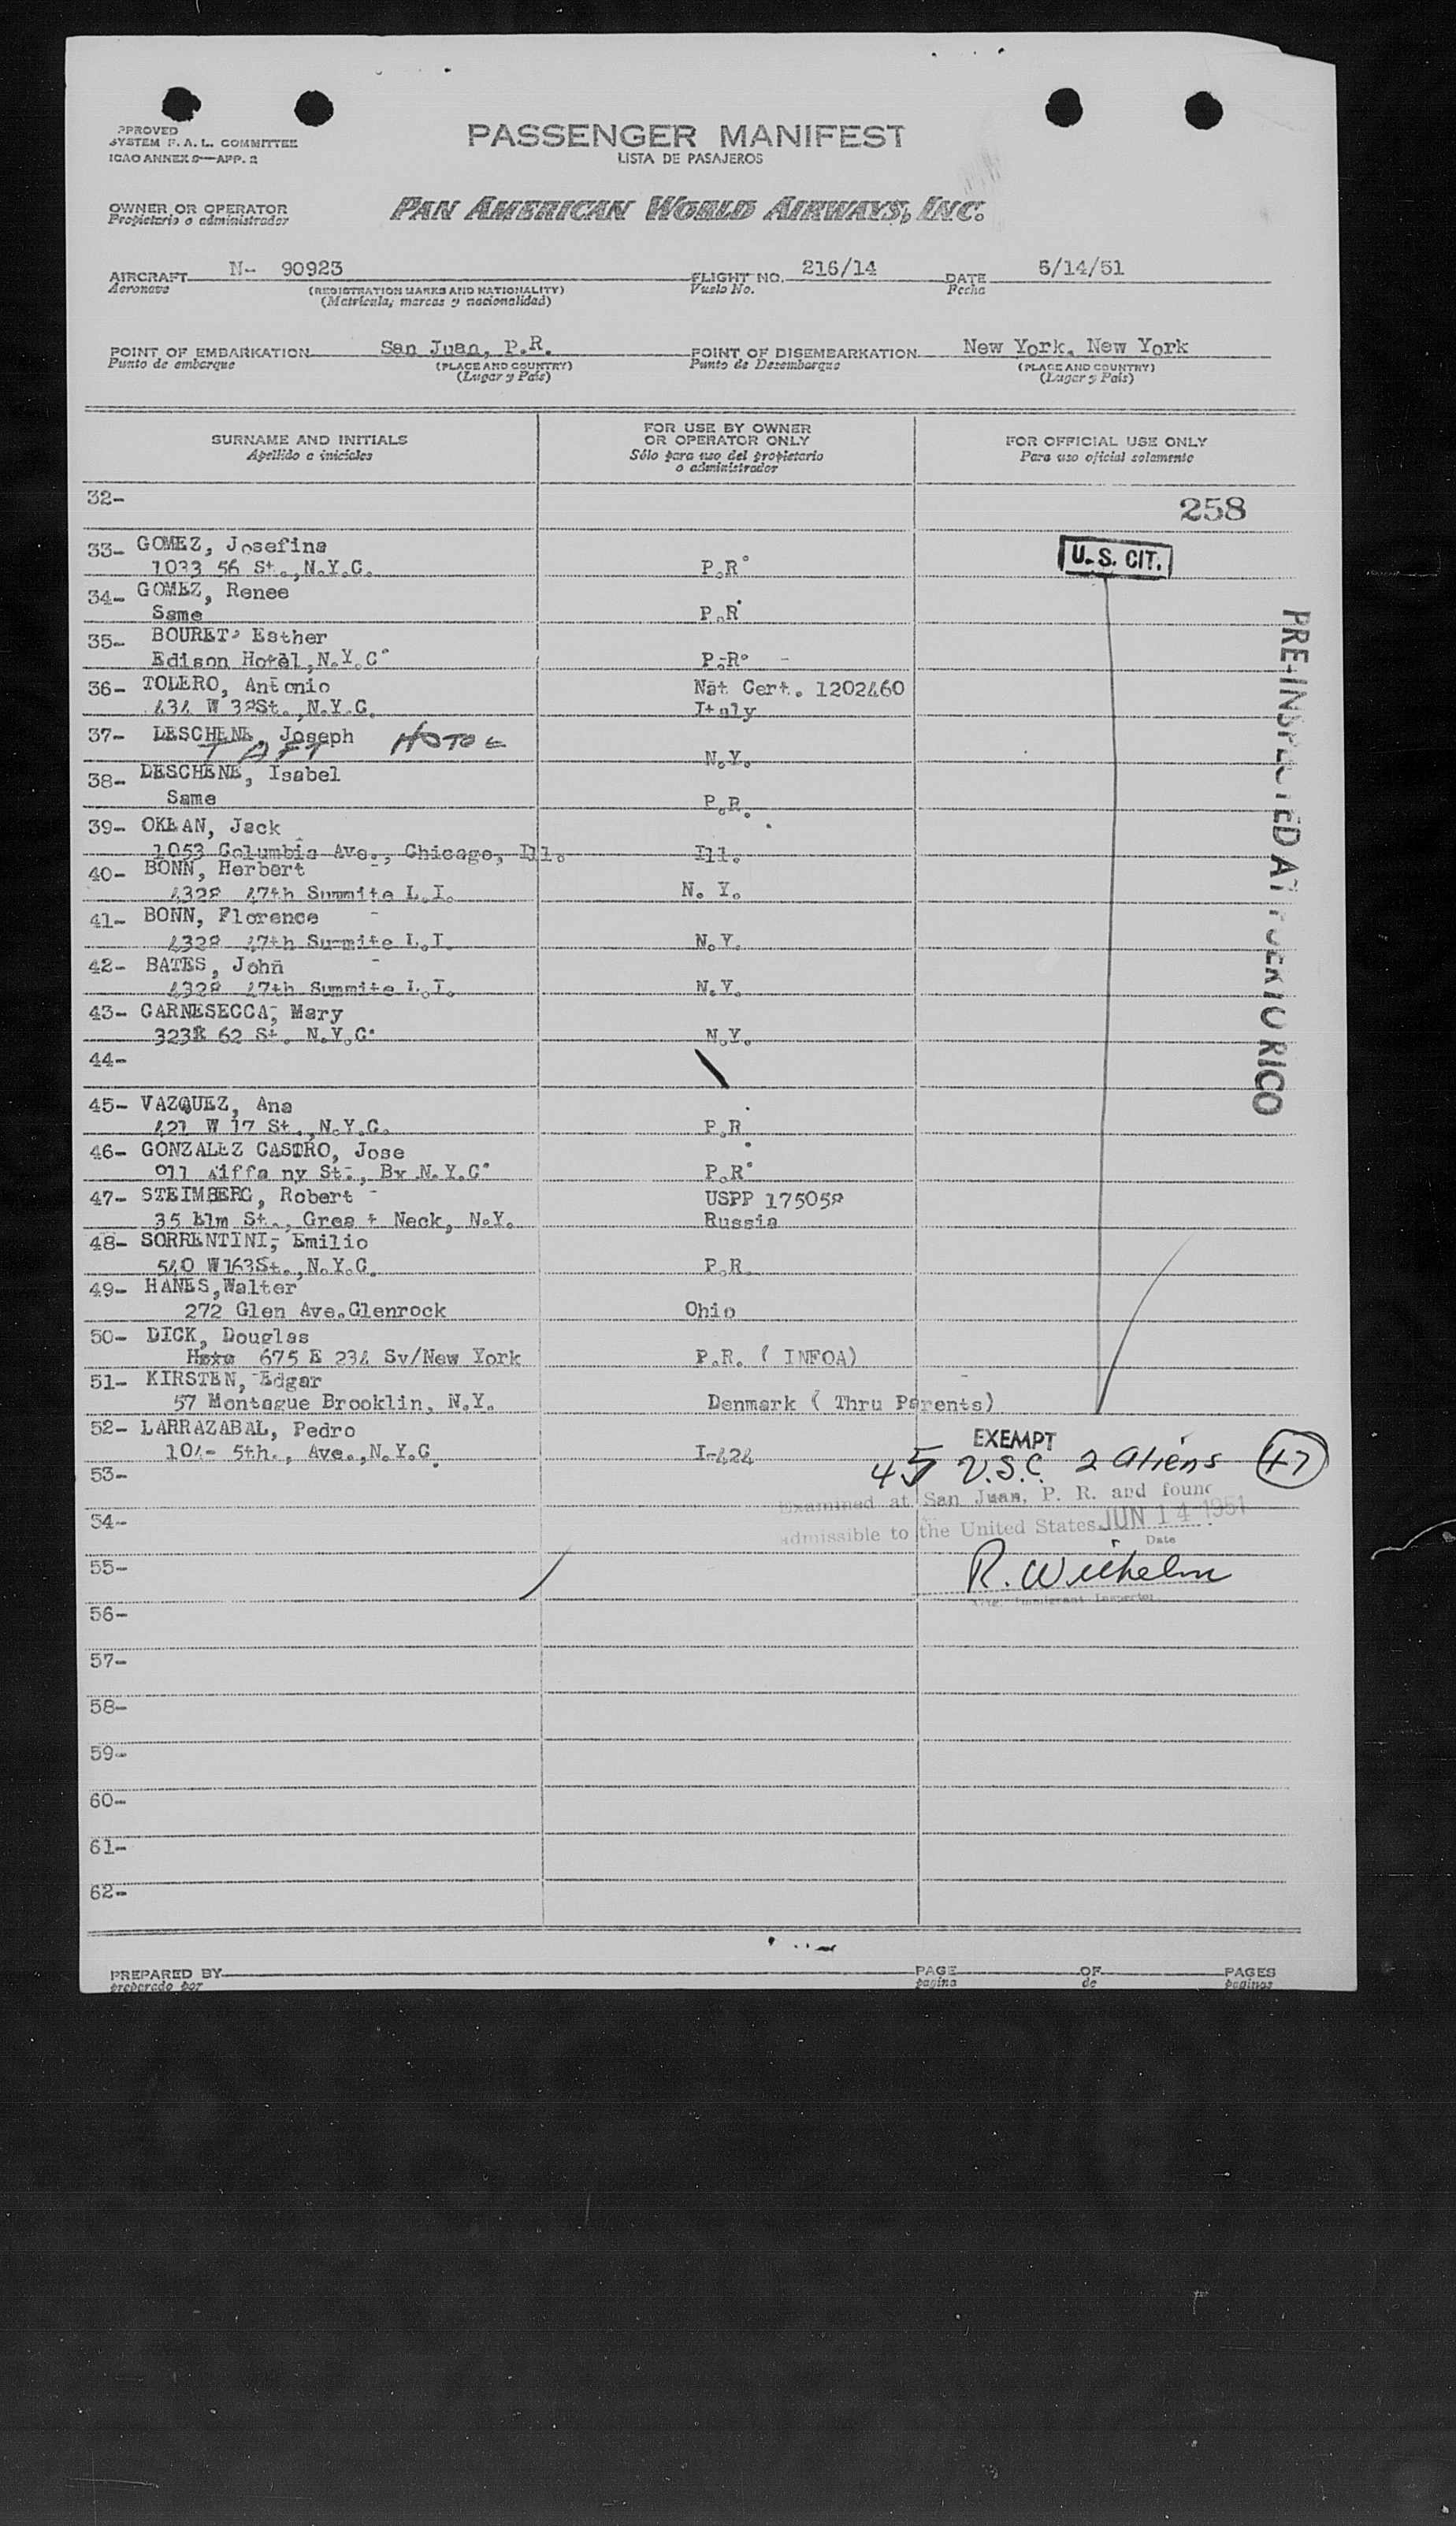 PPROVED
SYSTEM F. A. L. COMMITTEE
ICAO ANNEX 9—APP. 2
PASSENGER MANIFEST
LISTA DE PASAJEROS
OWNER OR OPERATOR
Propietario o administrador
PAN AMERICAN WORLD AIRWAYS, INC.
AIRCRAFT N- 90923 FLIGHT NO. 216/14 DATE 6/14/51
Aeronave (REGISTRATION MARKS AND NATIONALITY) Vuelo No. Fecha
(Matricula, marcas y nacionalidad)
POINT OF EMBARKATION San Juan, P.R. POINT OF DISEMBARKATION New York, New York
Punto de embarque (PLACE AND COUNTRY) Punto de Desembarque (PLACE AND COUNTRY)
(Lugar y País) (Lugar y País)
SURNAME AND INITIALS
Apellido e iniciales
FOR USE BY OWNER
OR OPERATOR ONLY
Sólo para uso del propietario
o administrador
FOR OFFICIAL USE ONLY
Para uso oficial solamente
32- 258
33- GOMEZ, Josefina U.S. CIT.
1033 56 St., N.Y.C. P.R.
34- GOMEZ, Renee
Same P.R.
35- BOURET, Esther
Edison Hotel, N.Y.C. P.R. -
36- TOLERO, Antonio Nat Cert. 1202460
434 W 38St., N.Y.C. Italy
37- DESCHENE, Joseph HOTOL
TAFT N.Y.
38- DESCHENE, Isabel
Same P.R.
39- OKEAN, Jack
1053 Columbia Ave., Chicago, Ill. Ill.
40- BONN, Herbert
4328 47th Summite L.I. N. Y.
41- BONN, Florence
4328 47th Summite L.I. N.Y.
42- BATES, John
4328 47th Summite L.I. N.Y.
43- CARNESECCA, Mary
62 St. N.Y.C. N.Y.
44-
45- VAZQUEZ, Ana
421 W 17 St., N.Y.C. P.R.
46- GONZALEZ CASTRO, Jose
911 Tiffa ny St., Bx N.Y.C. P.R.
47- STEIMBERG, Robert USPP 175058
35 Elm St., Grea t Neck, N.Y. Russia
48- SORRENTINI, Emilio
540 W163St., N.Y.C. P.R.
49- HANES, Walter
272 Glen Ave. Glenrock Ohio
50- DICK, Douglas
675 E 234 Sv/New York P.R. ( INFOA)
51- KIRSTEN, Edgar
57 Montague Brooklin, N.Y. Denmark ( Thru Parents)
52- LARRAZABAL, Pedro EXEMPT
104- 5th., Ave., N.Y.C. I-424
45 U.S.C. 2 aliens 47
53-
Examined at San Juan, P. R. and found
54-
admissible to the United States JUN 14 1951
Date
55- R. Wilhelm
Immigrant Inspector
56-
57-
58-
59-
60-
61-
62-
PRE-INSPECTED AT PUERTO RICO
PREPARED BY PAGE OF PAGES
preparado por pagina de paginas